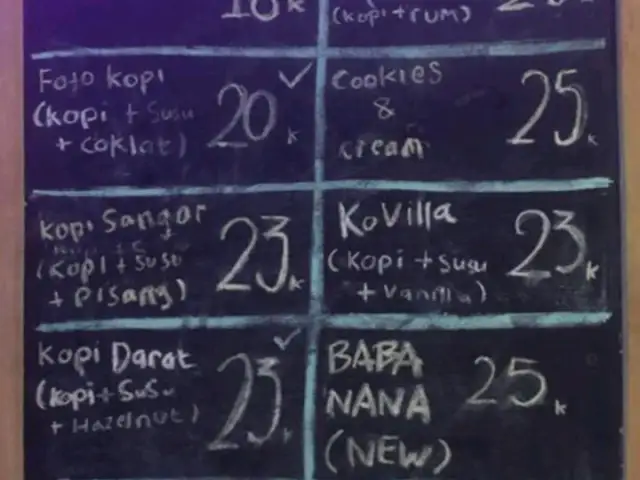 18k
(kopi + rum)
Foto kopi
(kopi + susu
+ coklat)
20k
Cookies
&
cream
25k
kopi Sangar
(kopi + susu
+ Pisang)
23k
KoVilla
(kopi + susu
+ vanilla)
23k
Kopi Darat
(kopi + susu
+ Hazelnut)
23k
BABA
NANA
(NEW)
25k